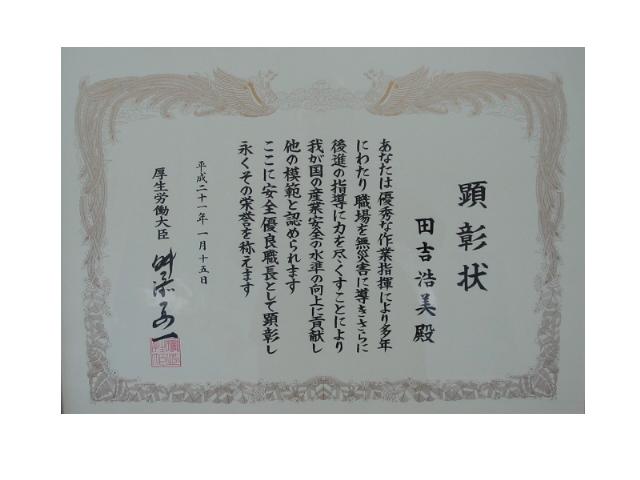 顕彰状
田吉浩美殿
あなたは優秀な作業指揮により多年
にわたり職場を無災害に導きさらに
後進の指導に力を尽くすことにより
我が国の産業安全の水準の向上に貢献し
他の模範と認められます
ここに安全優良職長として顕彰し
永くその栄誉を称えます
平成二十一年一月十五日
厚生労働大臣
舛添要一